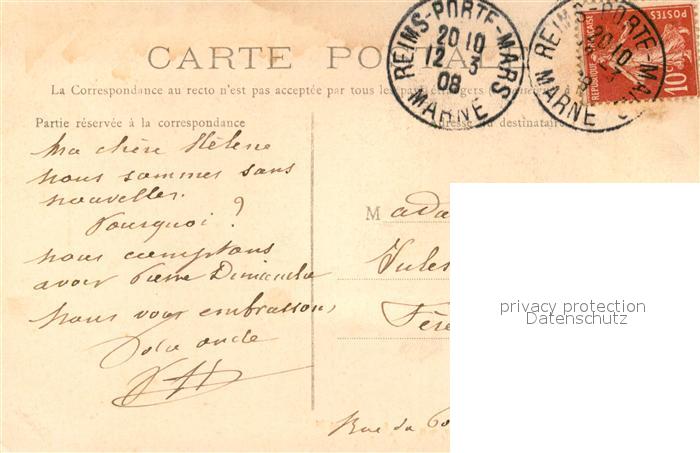 CARTE POSTALE
La Correspondance au recto n'est pas acceptée par tous les pays étrangers
Partie réservée à la correspondance
Adresse du destinataire
REIMS-PORTE-MARS
20 10
12 - 3
08
MARNE
REIMS-PORTE-MA
20 10
MARNE
RÉPUBLIQUE FRANÇAISE
POSTES
10
Ma chère Hélène
nous sommes sans
nouvelles.
Pourquoi ?
nous comptons
avoir Pierre Dimanche
Nous vous embrassons,
M ada
Jules
Fère
Rue du
privacy protection
Datenschutz